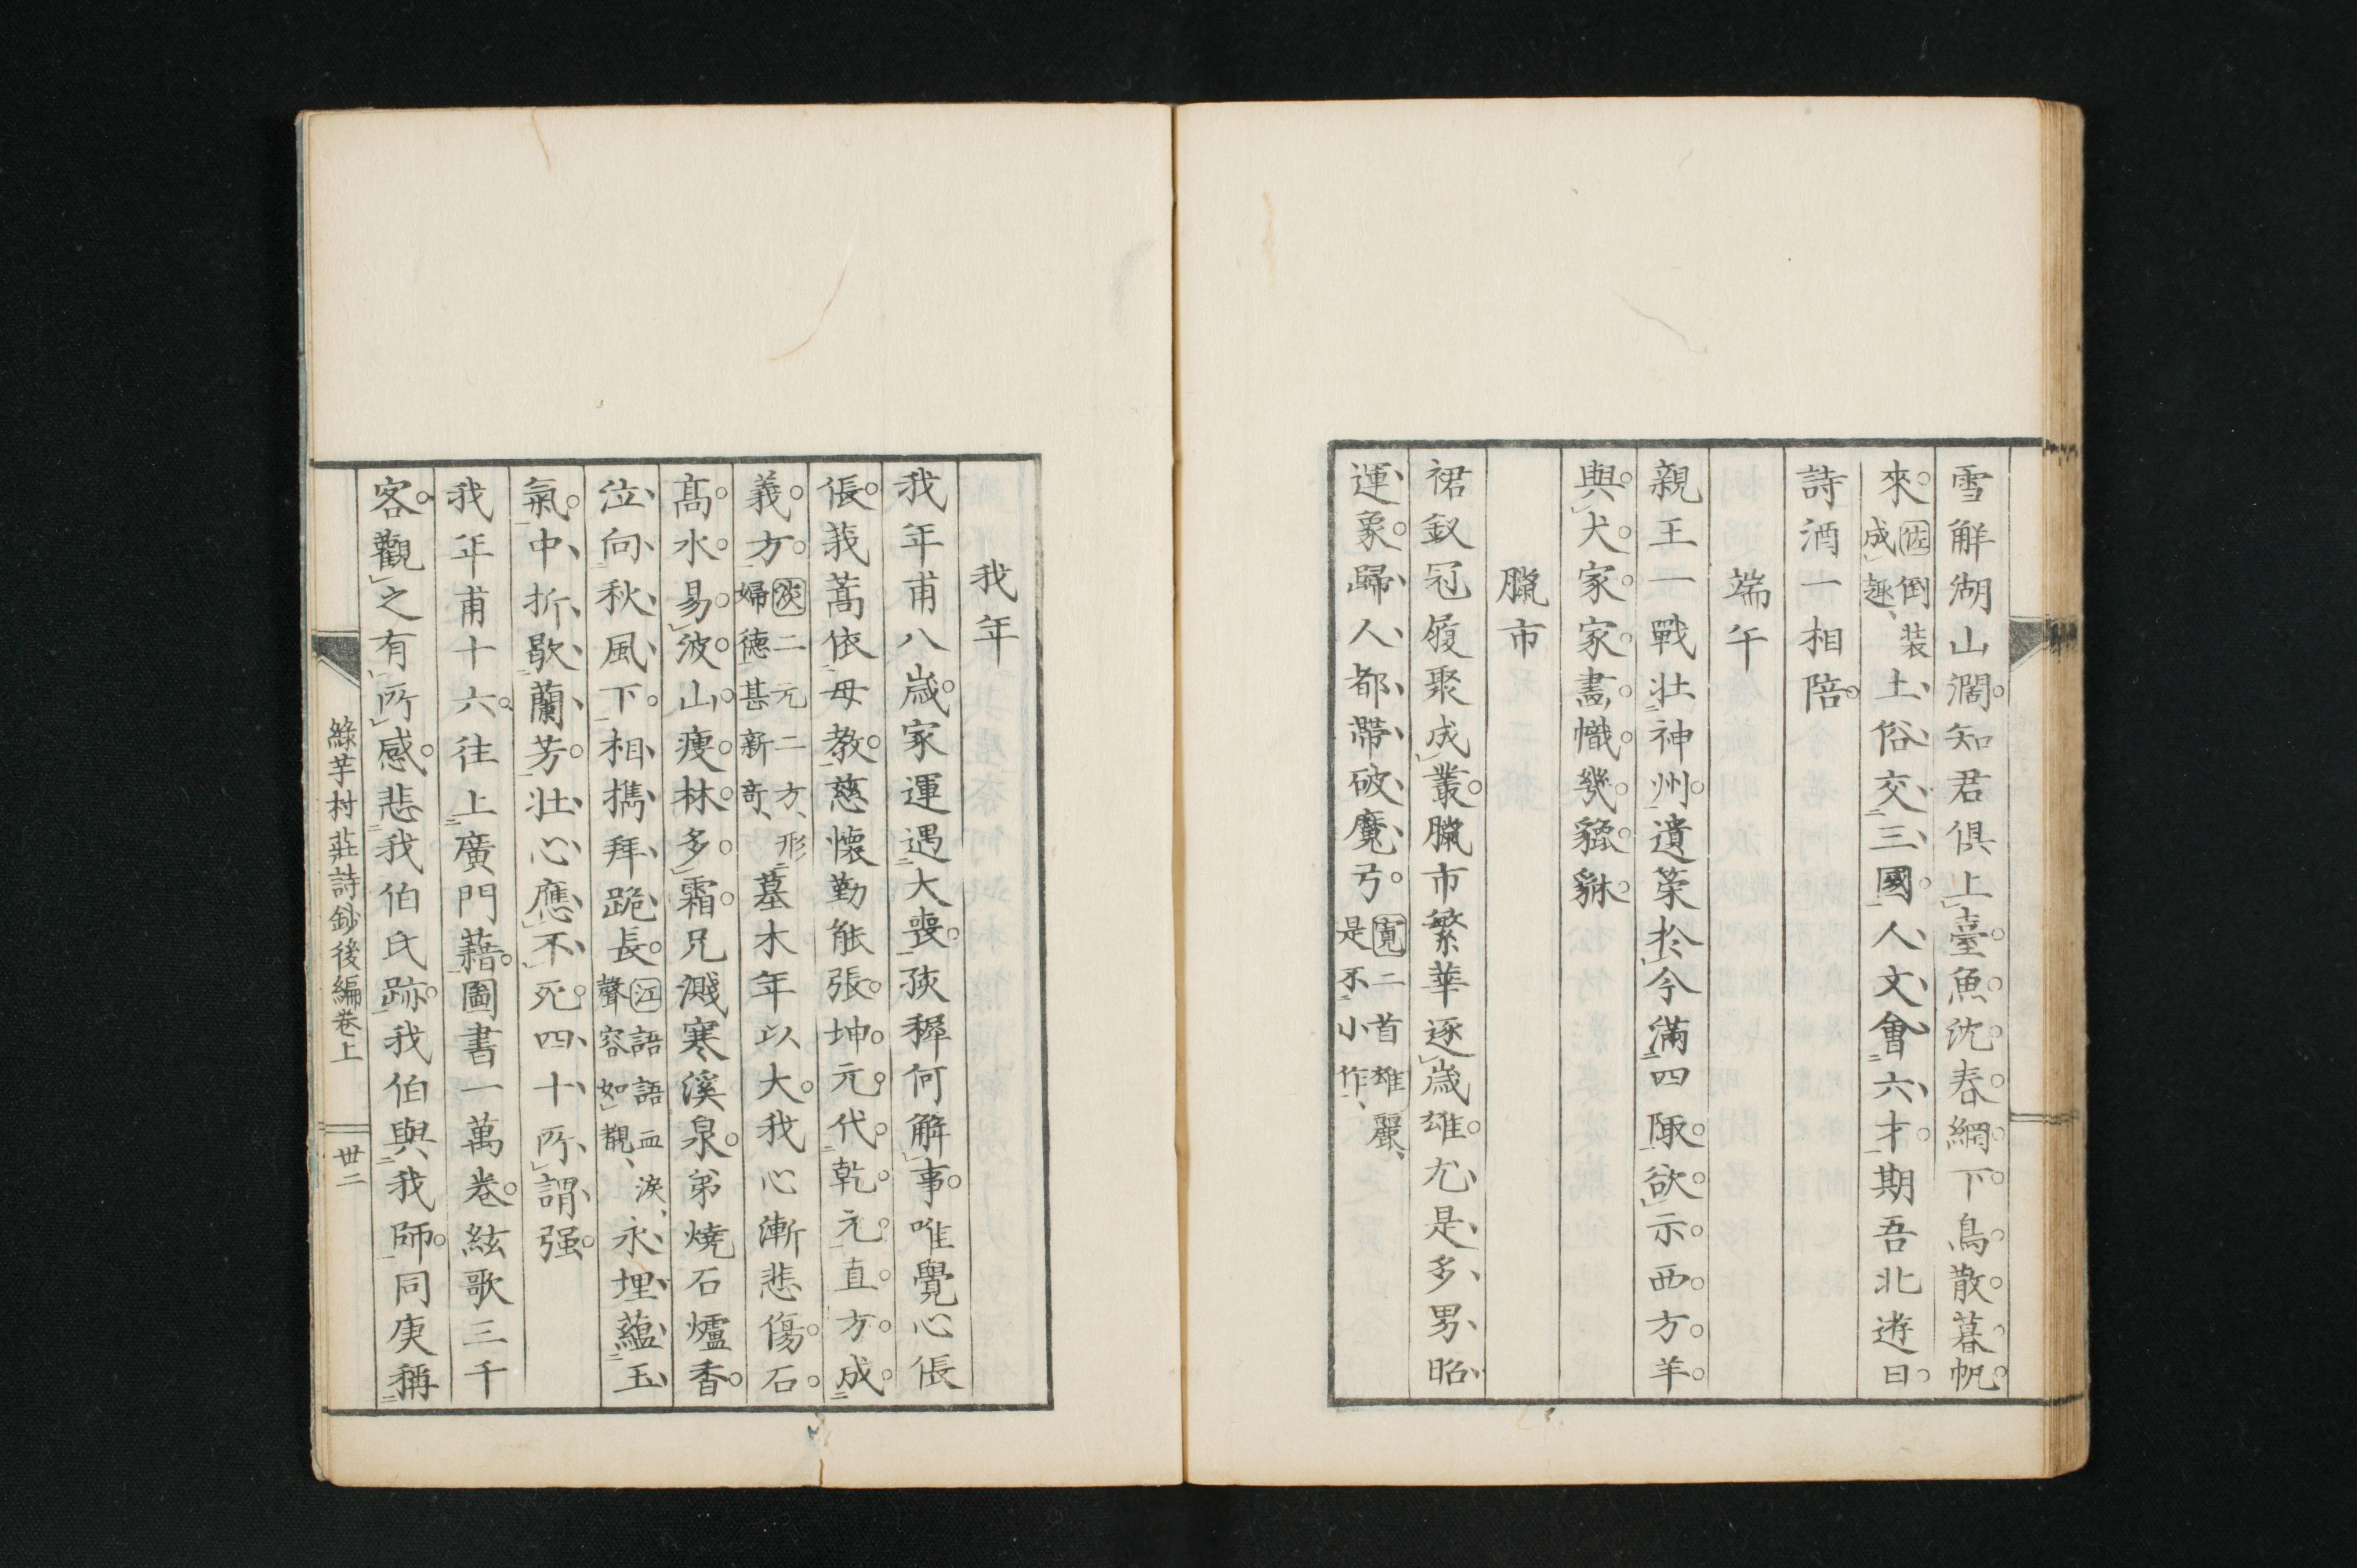 雪解湖山濶知君俱上臺魚沈春網下鳥散暮帆
來倒裝成趣土俗交三國人文會六才期吾北遊日
詩酒一相陪
端午
親王一戰壯神州遺策於今滿四陬欲示西方羊
與犬家家畫幟幾貔貅
臘市
裙釵冠履聚成叢臘市繁華逐歲雄尤是多男昭
運象歸人都帶破魔弓寬二首雄麗是不小作
我年
我年甫八歲家運遇大喪孩穉何解事唯覺心倀
倀莪蒿依母教慈懷勤能張坤元代乾元直方成
義方淡二元二方形婦德甚新奇墓木年以大我心漸悲傷石
高水易波山瘦林多霜兄濺寒溪泉弟燒石爐香
泣向秋風下相攜拜跪長江語語血淚聲容如覩永埋蘊玉
氣中折歇蘭芳壯心應不死四十所謂强
我年甫十六往上廣門藉圖書一萬卷絃歌三千
客觀之有所感悲我伯氏跡我伯與我師同庚稱
綠芋村莊詩鈔後編卷上
丗二